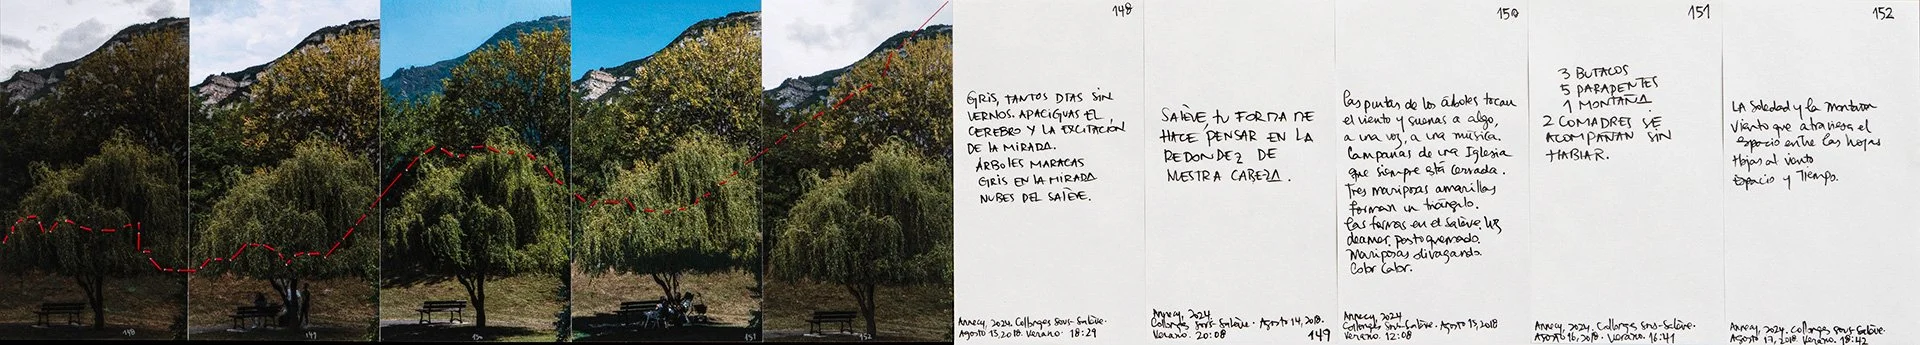 148
149
150
151
152
148
GRIS, TANTOS DIAS SIN
VERNOS. APACIGUAS EL
CEREBRO Y LA EXCITACIÓN
DE LA MIRADA.
ÁRBOLES MARACAS
GRIS EN LA MIRADA
NUBES DEL SALÈVE.
Annecy, 2024. Collonges Sous-Salève.
Agosto 13, 2018. Verano. 18:29
SALÈVE, tu FORMA ME
HACE PENSAR EN LA
REDONDEZ DE
NUESTRA CABEZA.
Annecy, 2024.
Collonges Sous-Salève. Agosto 14, 2018.
Verano. 20:08
149
150
las puntas de los árboles tocan
el viento y suenas a algo,
a una voz, a una música.
Campanas de una Iglesia
que siempre está cerrada.
Tres mariposas amarillas
forman un triángulo.
las formas en el Salève, luz
pasto quemado.
Mariposas divagando.
Annecy, 2024
Collonges Sous-Salève. Agosto 15, 2018
Verano. 12:08
151
3 BUTACOS
5 PARAPENTES
1 MONTAÑA.
2 COMADRES SE
ACOMPAÑAN SIN
HABLAR.
Annecy, 2024. Collonges Sous-Salève.
Agosto 16, 2018. Verano. 16:41
152
LA Soledad y la montaña
viento que atraviesa el
espacio entre las hojas
Hojas al viento
Espacio y Tiempo.
Annecy, 2024. Collonges Sous-Salève.
Agosto 17, 2018. Verano. 18:42